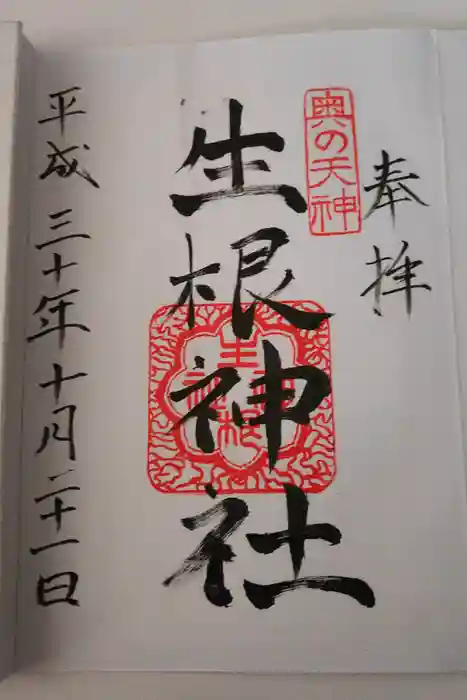 奉拝
奥の天神
生根神社
平成三十年十月二十一日